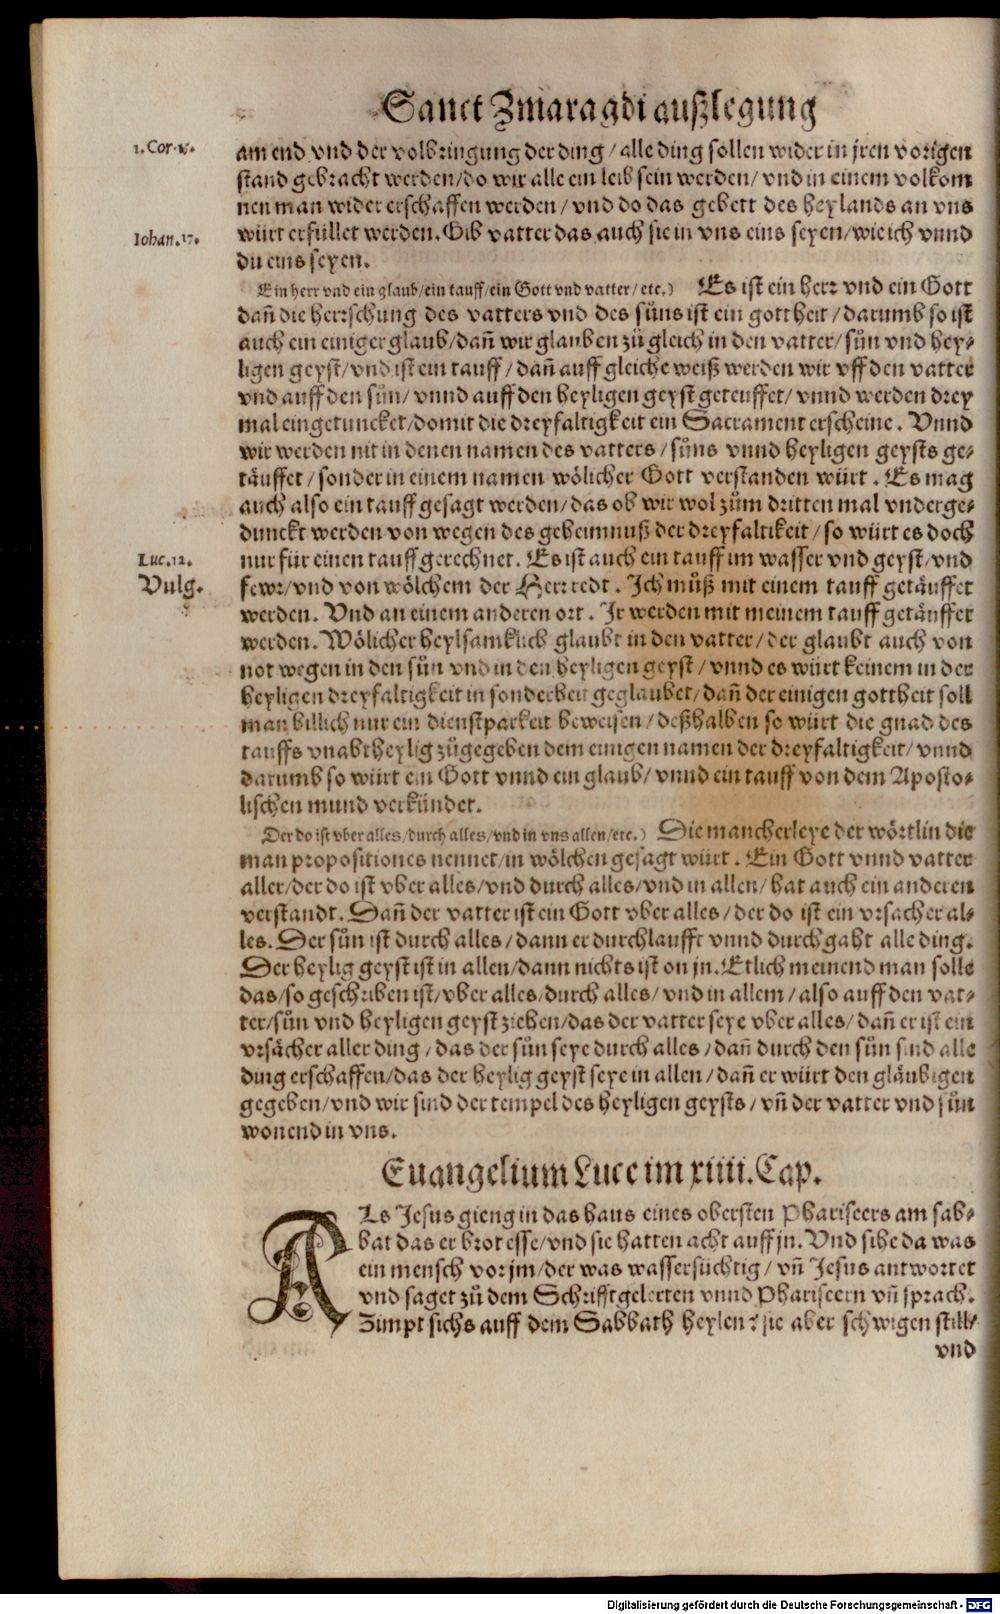 Sanct Zmaragdi außlegung
1. Cor. v.
am end vnd der volbringung der ding / alle ding sollen wider in jren vorigen
stand gebracht werden / do wir alle ein leib sein werden / vnd in einem volkom
nen man wider erschaffen werden / vnd do das gebett des heylands an vns
Iohan. 17.
würt erfüllet werden. Gib vatter das auch sie in vns eins seyen / wie ich vnnd
du eins seyen.
Ein herr vnd ein glaub / ein tauff / ein Gott vnd vatter / etc.) Es ist ein herr vnd ein Gott
dañ die herrschung des vatters vnd des sůns ist ein gottheit / darumb so ist
auch ein einiger glaub / dañ wir glauben zů gleich in den vatter / sůn vnd hey-
ligen geyst / vnd ist ein tauff / dañ auff gleiche weiß werden wir vff den vatter
vnd auff den sůn / vnnd auff den heyligen geyst geteuffet / vnnd werden drey
mal eingetuncket / domit die dreyfaltigkeit ein Sacrament erscheine. Vnnd
wir werden nit in denen namen des vatters / sůns vnnd heyligen geysts ge-
täuffet / sonder in einem namen wölicher Gott verstanden würt. Es mag
auch also ein tauff gesagt werden / das ob wir wol zům dritten mal vnderge-
dunckt werden von wegen des geheimnuß der dreyfaltikeit / so würt es doch
Luc. 12.
nur für einen tauff gerechnet. Es ist auch ein tauff im wasser vnd geyst / vnd
Vulg.
fewr / vnd von wölchem der Herr redt. Ich můß mit einem tauff getäuffet
werden. Vnd an einem anderen ort. Ir werden mit meinem tauff getäuffet
werden. Wölicher heylsamklich glaubt in den vatter / der glaubt auch von
not wegen in den sůn vnd in den heyligen geyst / vnnd es würt keinem in der
heyligen dreyfaltigkeit in sonderheit geglaubet / dañ der einigen gottheit soll
man billich nur ein dienstparkeit beweisen / deßhalben so würt die gnad des
tauffs vnabtheylig zůgegeben dem einigen namen der dreyfaltigkeit / vnnd
darumb so würt ein Gott vnnd ein glaub / vnnd ein tauff von dem Aposto-
lischen mund verkündet.
Der do ist vber alles / durch alles / vnd in vns allen / etc.) Die mancherleye der wörtlin die
man propositiones nennet / in wölchen gesagt würt. Ein Gott vnnd vatter
aller / der do ist vber alles / vnd durch alles / vnd in allen / hat auch ein anderen
verstandt. Dañ der vatter ist ein Gott vber alles / der do ist ein vrsacher al-
les. Der sůn ist durch alles / dann er durchlaufft vnnd durchgaht alle ding.
Der heylig geyst ist in allen / dann nichts ist on jn. Etlich meinend man solle
das / so geschriben ist / vber alles / durch alles / vnd in allem / also auff den vat-
ter / sůn vnd heyligen geyst ziehen / das der vatter seye vber alles / dañ er ist ein
vrsächer aller ding / das der sůn seye durch alles / dañ durch den sůn sind alle
ding erschaffen / das der heylig geyst seye in allen / dañ er würt den gläubigen
gegeben / vnd wir sind der tempel des heyligen geysts / vñ der vatter vnd sůn
wonend in vns.
Euangelium Luce im xiiii. Cap.
ALs Jesus gieng in das haus eines obersten Phariseers am sab-
bat das er brot esse / vnd sie hatten acht auff jn. Vnd sihe da was
ein mensch vor jm / der was wassersüchtig / vñ Jesus antwortet
vnd saget zů dem Schrifftgelerten vnnd Phariseern vñ sprach.
Zimpt sichs auff dem Sabbath heylen? sie aber schwigen still /
vnd
Digitalisierung gefördert durch die Deutsche Forschungsgemeinschaft - DFG